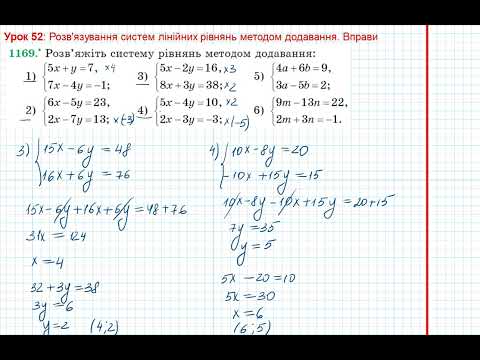 Урок 52: Розв'язування систем лінійних рівнянь методом додавання. Вправи
1169.• Розв'яжіть систему рівнянь методом додавання:
1) {5x + y = 7, x4
7x − 4y = −1;
3) {5x − 2y = 16, x3
8x + 3y = 38; x2
5) {4a + 6b = 9,
3a − 5b = 2;
2) {6x − 5y = 23,
2x − 7y = 13; x(-3)
4) {5x − 4y = 10, x2
2x − 3y = −3; x(-5)
6) {9m − 13n = 22,
2m + 3n = −1.
3) {15x − 6y = 48
16x + 6y = 76
15x − 6y + 16x + 6y = 48 + 76
31x = 124
x = 4
32 + 3y = 38
3y = 6
y = 2 (4; 2)
4) {10x − 8y = 20
−10x + 15y = 15
10x − 8y − 10x + 15y = 20 + 15
7y = 35
y = 5
5x − 20 = 10
5x = 30
x = 6
(6; 5)